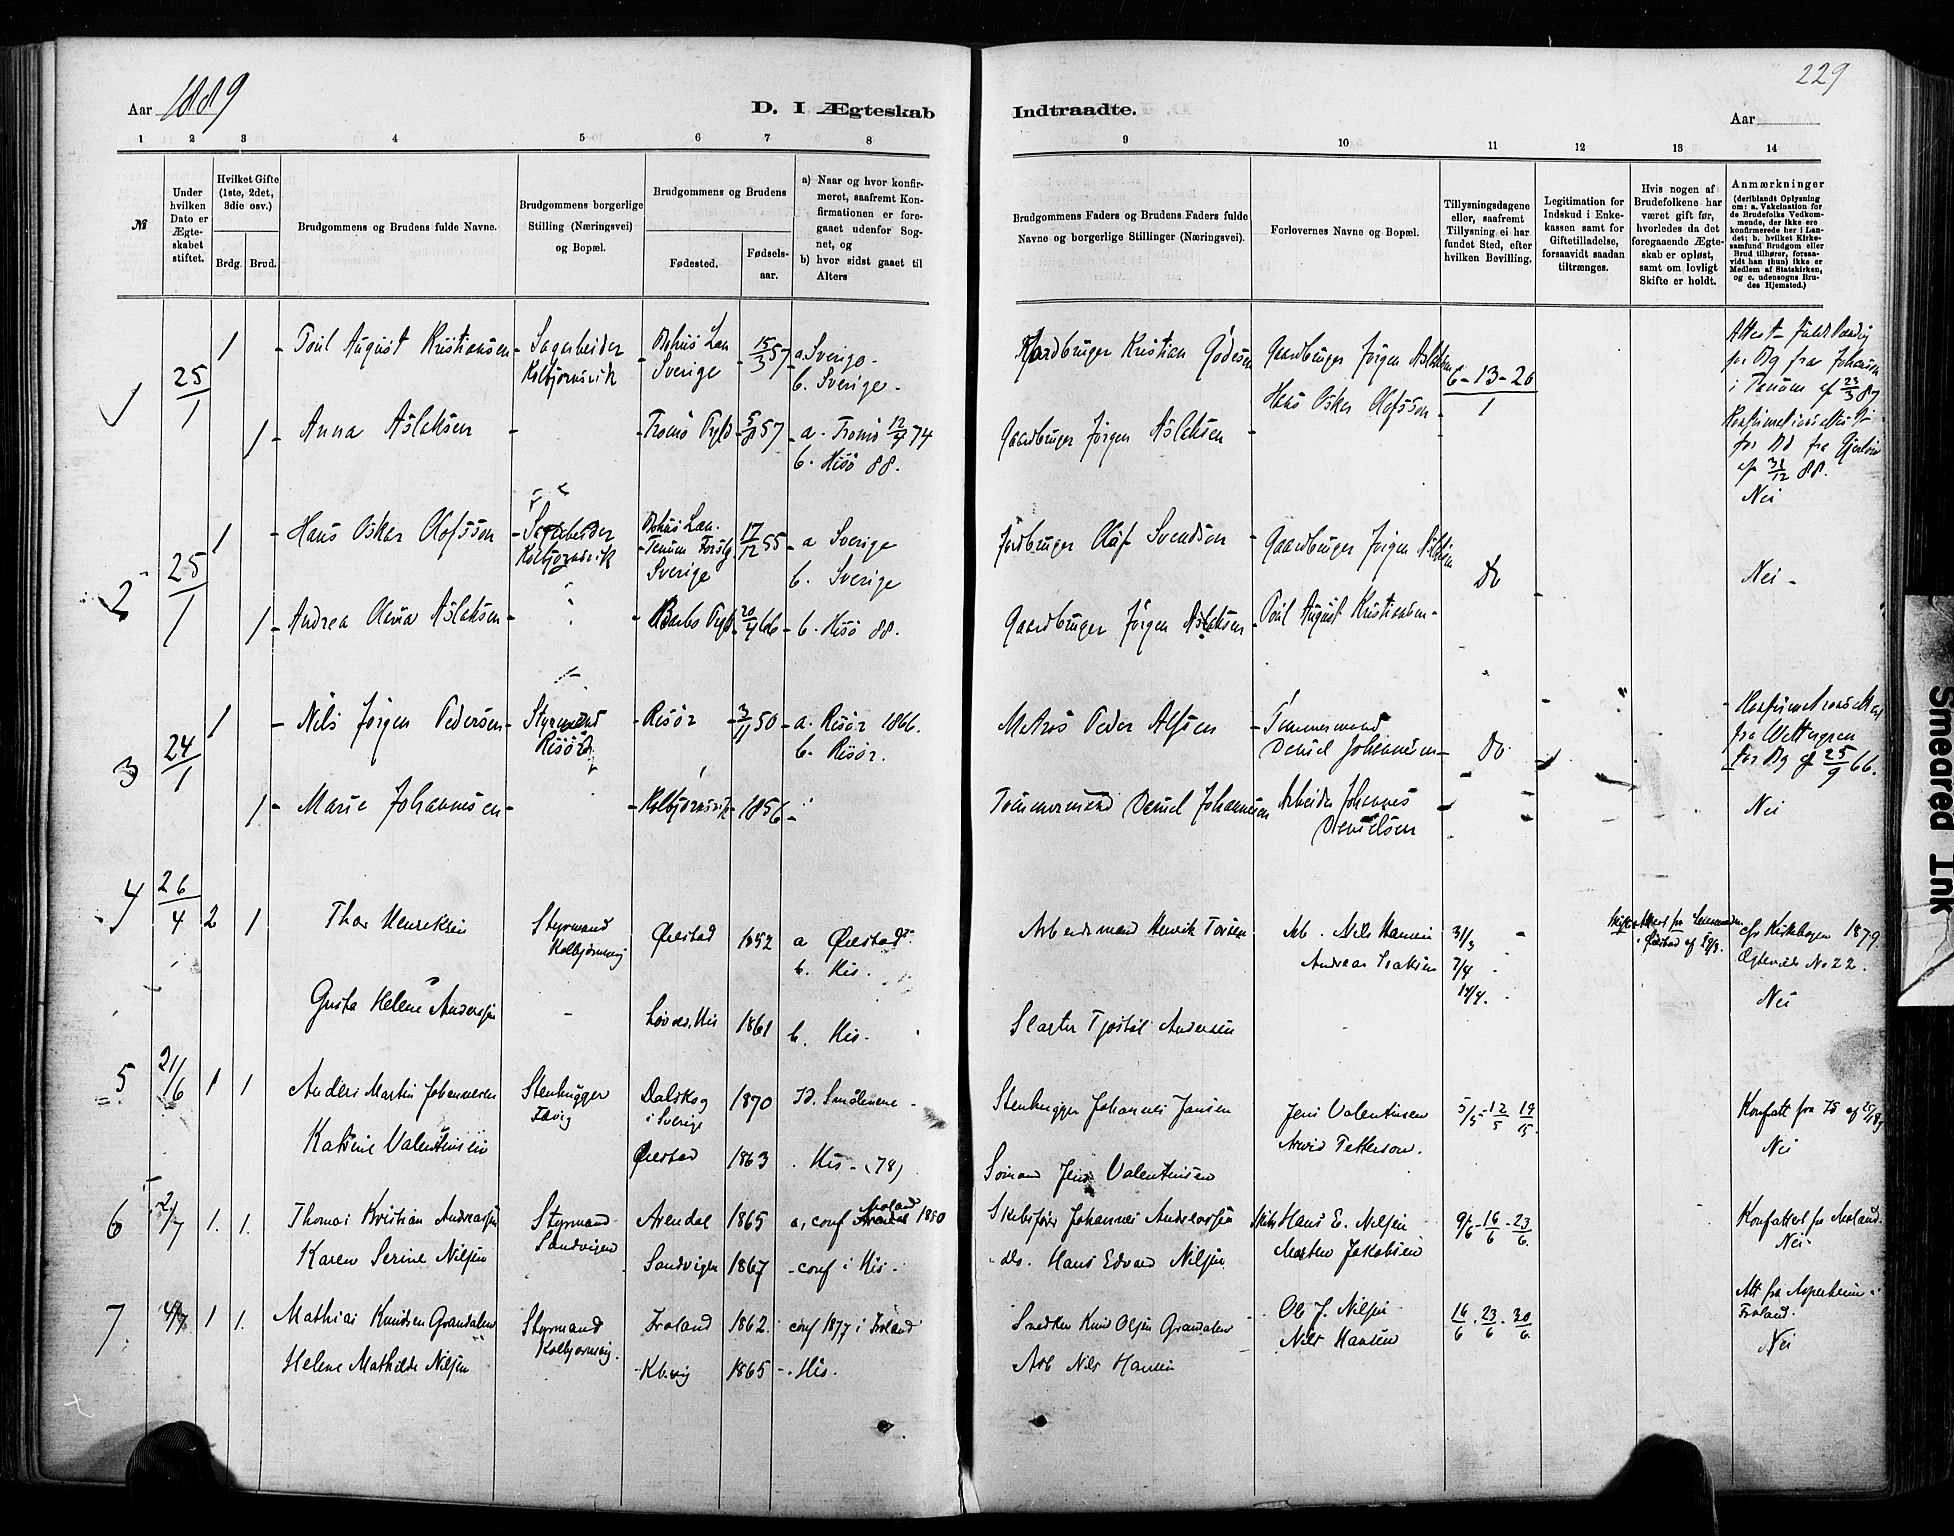 Aar 1889
D. I Ægteskab Indtraadte.
229
Aar
1 2 3 4 5 6 7 8 9 10 11 12 13 14
№
Under hvilken Dato er Ægteskabet stiftet.
Hvilket Gifte (1ste, 2det, 3die osv.)
Brdg. Brud.
Brudgommens og Brudens fulde Navne.
Brudgommens borgerlige Stilling (Næringsvei) og Bopæl.
Brudgommens og Brudens
Fødested.
Fødselsaar.
a) Naar og hvor konfirmeret, saafremt Konfirmationen er foregaaet udenfor Sognet, og
b) hvor sidst gaaet til Alters
Brudgommens Faders og Brudens Faders fulde Navne og borgerlige Stillinger (Næringsvei).
Forlovernes Navne og Bopæl.
Tillysningsdagene eller, saafremt Tillysning ei har fundet Sted, efter hvilken Bevilling.
Legitimation for Indskud i Enkekassen samt for Giftetilladelse, forsaavidt saadan tiltrænges.
Hvis nogen af Brudefolkene har været gift før, hvorledes da det foregaaende Ægteskab er opløst, samt om lovligt Skifte er holdt.
Anmærkninger (deriblandt Oplysning om: a. Vakcination for de Brudefolks Vedkommende, der ikke ere konfirmerede her i Landet; b. hvilket Kirkesamfund Brudgom eller Brud tilhører, forsaavidt han (hun) ikke er Medlem af Statskirken, og c. udensogns Brudes Hjemsted.)
1 25/1 1 Poul August Kristiansen Sagarbeider Kolbjørnsvik Bohus Län Sverige 15/3 57 a Sverige b. Sverige
Gaardbruger Jørgen Aslaksen Hans Oskar Olofsson 6-13-20/1
1 Anna Aslaksen Tromø 5/8 57 a. Tromø 74 b. Hisø 88.
Gaardbruger Jørgen Aslaksen
af 31/12 88.
Nei
2 25/1 1 Hans Oskar Olofsson Sagarbeider Kolbjørnsvik Bohus Län Sverige 17/12 55 a Sverige b. Sverige
Jordbruger Olof Svendsen Gaardbruger Jørgen Aslaksen Do Nei
1 Andrea Olena Aslaksen Barbo 20/4 66 b. Hisø 88.
Gaardbruger Jørgen Aslaksen Poul August Kristiansen
3 24/1 1 Nils Jørgen Pedersen Styrmand Risør Risør 3/11 50 a. Risør 1866. b. Risør.
Matros Peder Tømmermand Daniel Johannesen Do
fra Wettergren for Bg af 25/9 66.
1 Marie Johannesen Kolbjørnsvik 1856
Tømmermand Daniel Johannesen Arbeider Johannes Danielsen Nei
4 26/4 2 1 Thor Henriksen Styrmand Kolbjørnsvig Øiestad 1852 a Øiestad b. His.
Arbeidsmand Henrik Arb. Nils Hansen Andreas Isaksen 31/3 7/4 14/4.
Kirkebogen 1879. No 22.
Gusta Helene Anderssen His 1861 b. His.
Slagter Andersen
Nei
5 21/6 1 1 Anders Martin Johannesen Stenhugger Dalskog i Sverige 1870 Id. Smålenene
Stenhugger Johannes Jansen Jens Valentinsen Arvid Petterson. 5/5 12/5 19/5.
Konfatt fra Id af
Katrine Valentinsen Øiestad 1863 His (78)
Sømand Jens Valentinsen
Nei
6 2/7 1. 1. Thomas Kristian Andreassen Styrmand Sandvigen Arendal 1865 a, conf Moland 1880
Skibsfører Johannes Andreassen Hans E. Nilsen Morten Jakobsen 9/6 - 16/6 - 23/6
Konfattest fra Moland.
Karen Serine Nilsen Sandvigen 1867 conf i His
do. Hans Edvard Nilsen
Nei
7 4/7 1 1. Mathias Knudsen Grandalen Styrmand Kolbjørnsvig. Froland 1862. conf 1877 i Froland
Snedker Knud Olsen Grandalen Ole J. Nilsen Nils Hansen 16/6 . 23/6 . 30/6.
Att fra Asperheim i Froland
Helene Mathilde Nilsen Kb.vig 1865 His.
Arb Nils Hansen
Nei
Smeared Ink